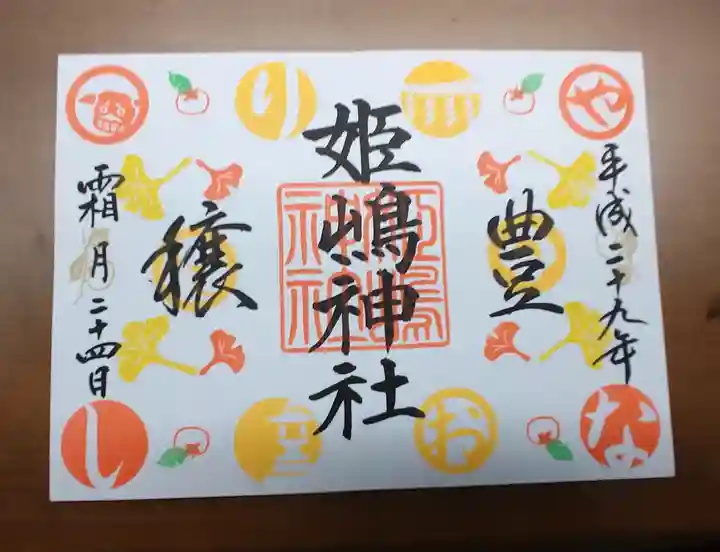 平成二十九年
豊
姫嶋神社
穣
霜月二十四日
や
り
な
お
し
姫嶋
神社